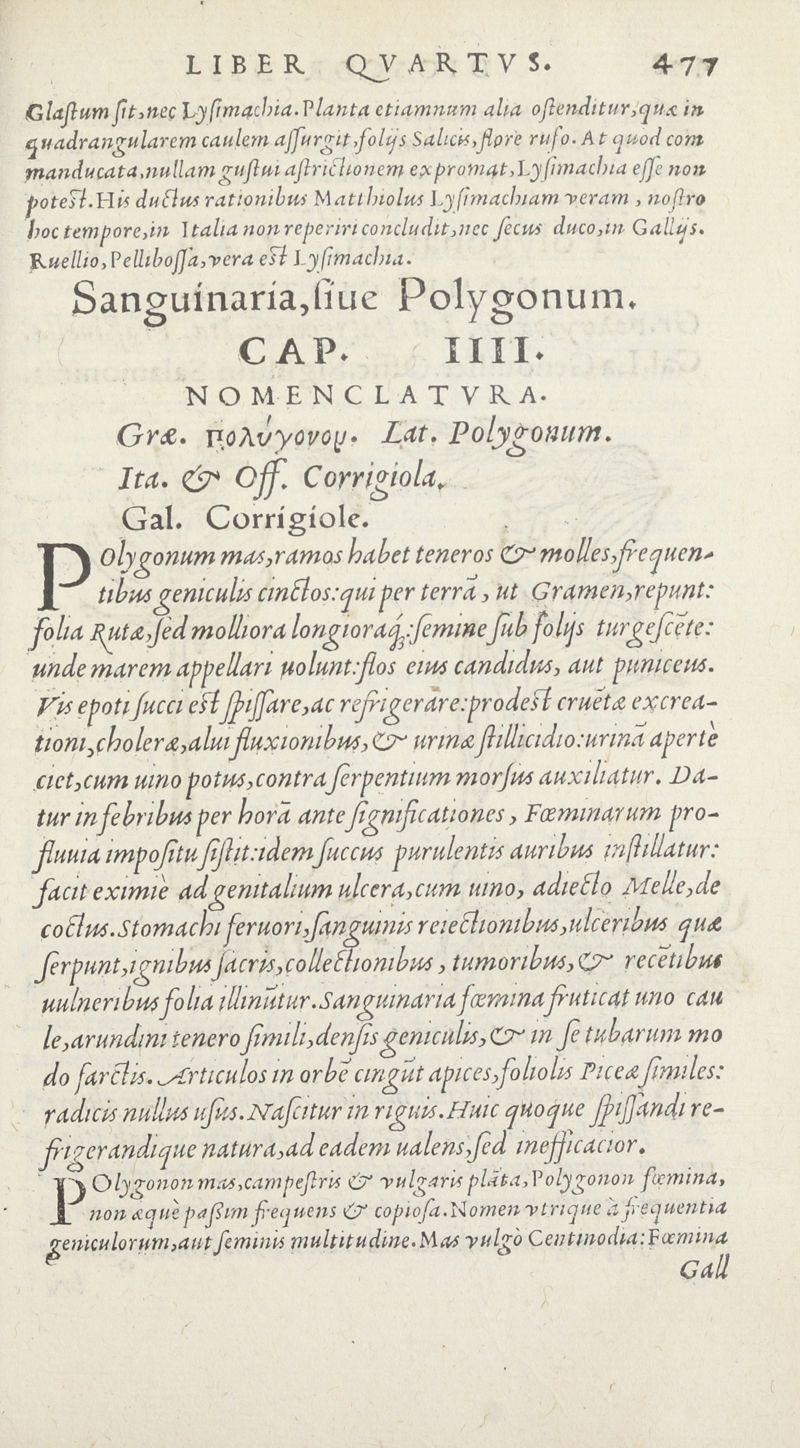 LIBER QVARTVS. 477
Glaſtum ſit,nec Lyſimachia.Planta etiamnum alia oſtenditur,quæ in
quadrangularem caulem aſſurgit,folijs Salicis,flore rufo.At quod com
manducata,nullam guſtui aſtrictionem expromat,Lyſimachia eſſe non
poteſt.His ductus rationibus Matthiolus Lyſimachiam veram , noſtro
hoc tempore,in Italia non reperiri concludit,nec ſecus duco,in Gallijs.
Ruellio,Pelliboſſa,vera eſt Lyſimachia.
Sanguinaria,ſiue Polygonum.
CAP. IIII.
NOMENCLATVRA.
Græ. πολύγονομ. Lat. Polygonum.
Ita. & Off. Corrigiola,
Gal. Corrigiole.
POlygonum mas,ramos habet teneros & molles,frequen-
tibus geniculis cinctos:qui per terrā , ut Gramen,repunt:
folia Rutæ,ſed molliora longioraq́;:ſemine ſub folijs turgeſcēte:
unde marem appellari uolunt:flos eius candidus, aut puniceus.
Vis epoti ſucci eſt ſpiſſare,ac refrigerāre:prodeſt cruētæ excrea-
tioni,choleræ,alui fluxionibus,& urinæ ſtillicidio:urinā apertè
ciet,cum uino potus,contra ſerpentium morſus auxiliatur. Da-
tur in febribus per horā ante ſignificationes , Fœminarum pro-
fluuia impoſitu ſiſtit:idem ſuccus purulentis auribus inſtillatur:
facit eximiè ad genitalium ulcera,cum uino, adiecto Melle,de
coctus.Stomachi feruori,ſanguinis reiectionibus,ulceribus quæ
ſerpunt,ignibus ſacris,collectionibus , tumoribus,& recētibus
uulneribus folia illinūtur.Sanguinaria fœmina fruticat uno cau
le,arundini tenero ſimili,denſis geniculis,& in ſe tubarum mo
do farctis.Articulos in orbē cingūt apices,foliolis Piceæ ſimiles:
radicis nullus uſus.Naſcitur in riguis.Huic quoque ſpiſſandi re-
frigerandique natura,ad eadem ualens,ſed inefficacior.
POlygonon mas,campeſtris & vulgaris plāta,Polygonon fœmina,
non æquè paſsim frequens & copioſa.Nomen vtrique à frequentia
geniculorum,aut ſeminis multitudine.Mas vulgò Centinodia:Fœmina
Gall